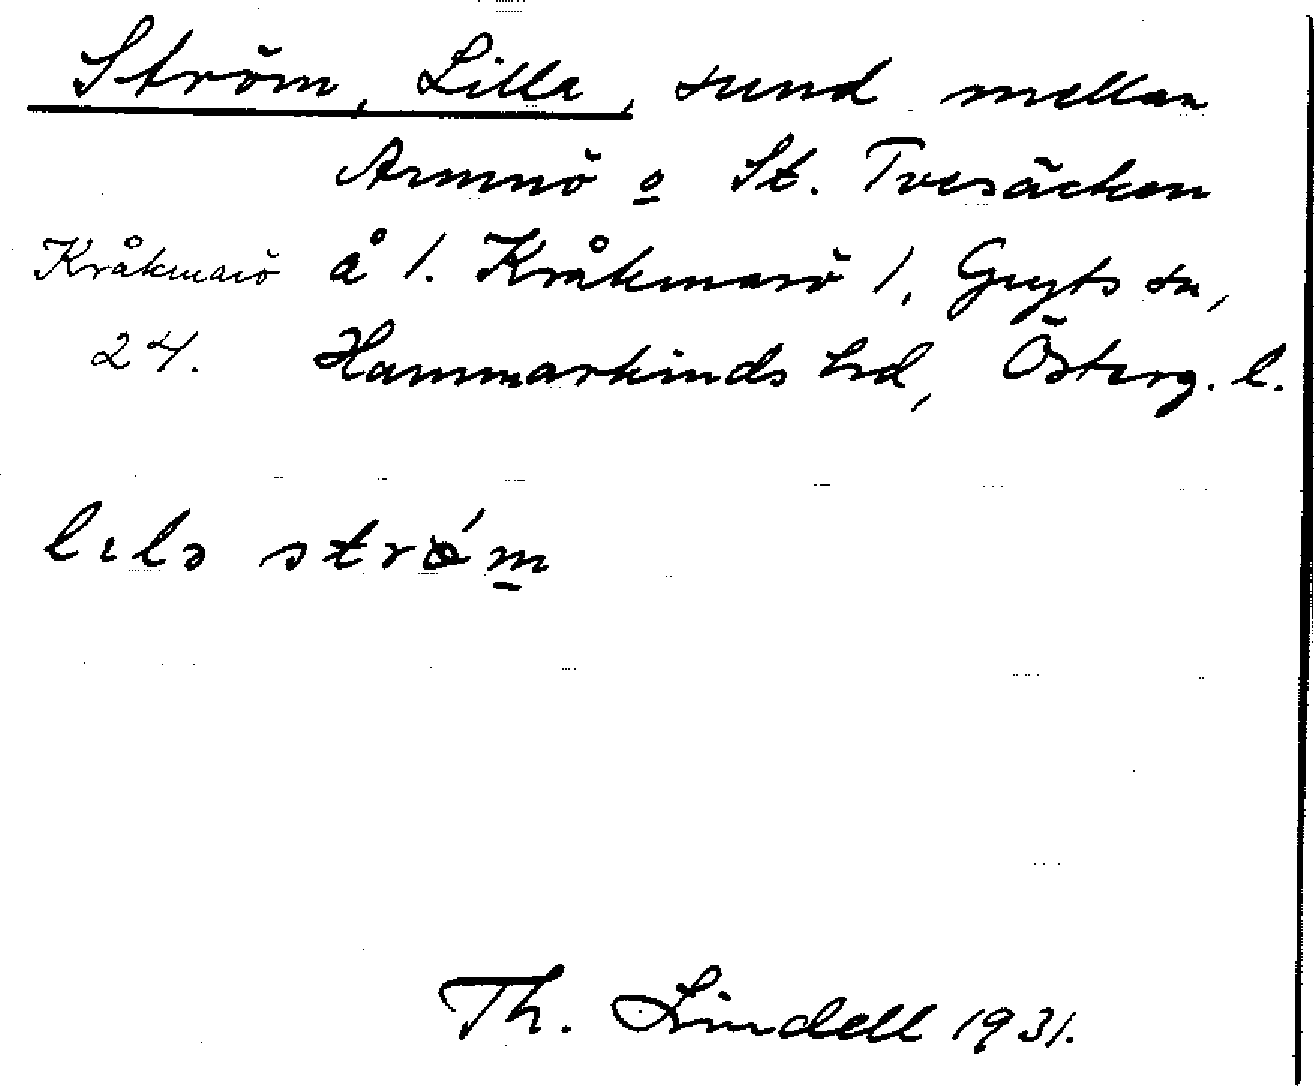 Ström, Lilla, sund mellan
Armnö o St. Tvesäcken
Kråkmarö å 1. Kråkmarö 1, Gryts sn,
24. Hammarkinds hd, Österg. l.
lıla strö́m
Th. Lindell 1931.